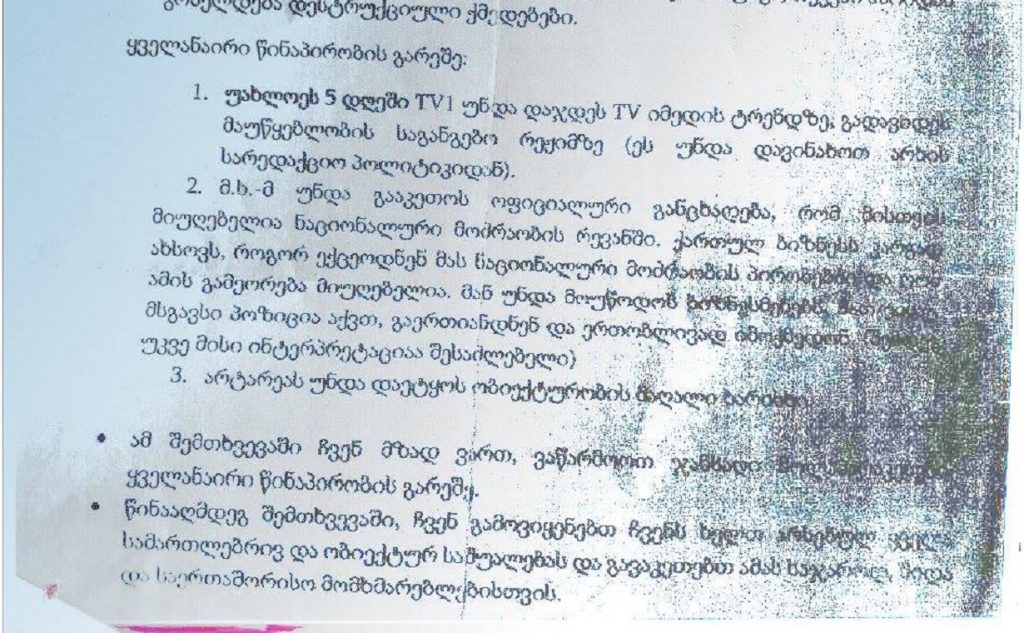 დესტრუქციული ქმედებები.
ყველანაირი წინაპირობის გარეშე:
1. უახლოეს 5 დღეში TV1 უნდა დაჯდეს TV იმედის ტრენდზე, გადავიდეს
მაუწყებლობის საგანგებო რეჟიმზე (ეს უნდა დავინახოთ არხის
სარედაქციო პოლიტიკიდან).
2. მ.ხ.-მ უნდა გააკეთოს ოფიციალური განცხადება, რომ მისთვის
მიუღებელია ნაციონალური მოძრაობის რევანში. ქართულ ბიზნესს კარგად
ახსოვს, როგორ ექცეოდნენ მას ნაციონალური მოძრაობის
ამის გამეორება მიუღებელია. მან უნდა მოუწოდოს ბიზნესმენებს,
მსგავსი პოზიცია აქვთ, გაერთიანდნენ და ერთობლივად იმოქმედონ.
უკვე მისი ინტერპრეტაციაა შესაძლებელი)
3. არტარეას უნდა დაეტყოს ობიექტურობის მაღალი ხარისხი
• ამ შემთხვევაში ჩვენ მზად ვართ, ვაწარმოოთ ჯანსაღი
ყველანაირი წინაპირობის გარეშე.
• წინააღმდეგ შემთხვევაში, ჩვენ გამოვიყენებთ ჩვენს ხელთ არსებულ ყველა
სამართლებრივ და ობიექტურ საშუალებას და გავაკეთებთ ამას საჯაროდ, შიდა
და საერთაშორისო მომხმარებლებისთვის.